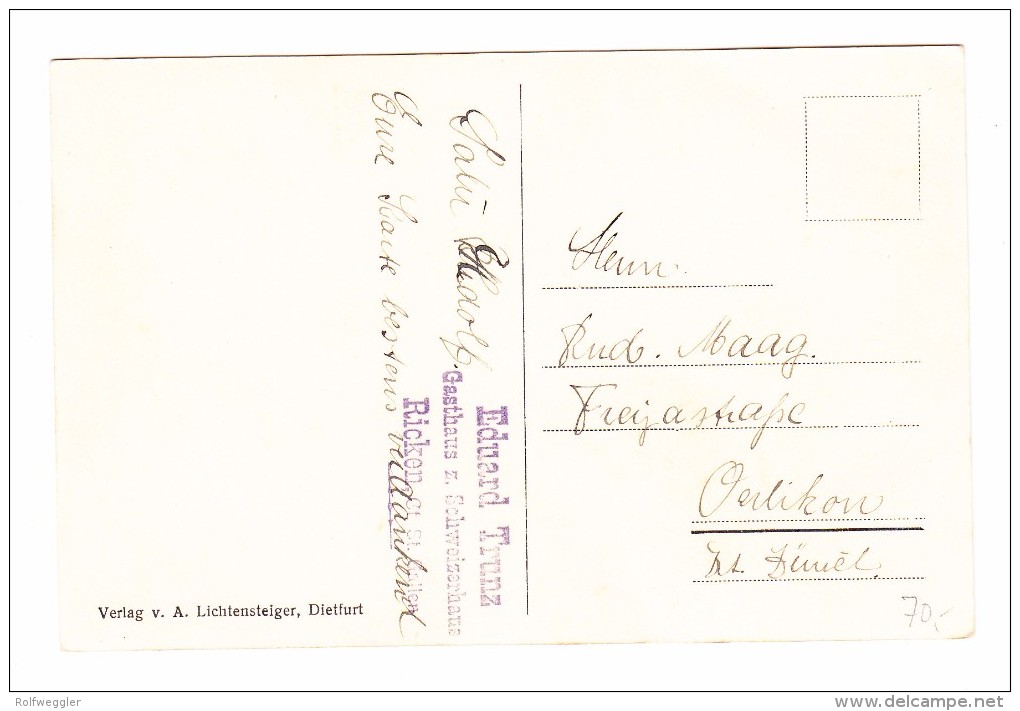 Salü Rudolf.
Eure Karte bestens verdankend
Eduard Trunz
Gasthaus z. Schweizerhaus
Ricken, Ct. St. Gallen
Herrn.
Rud. Maag.
Freijastraße
Oerlikon
Kt. Zürich.
70,-
Verlag v. A. Lichtensteiger, Dietfurt
Rolfweggler
www.delcampe.net